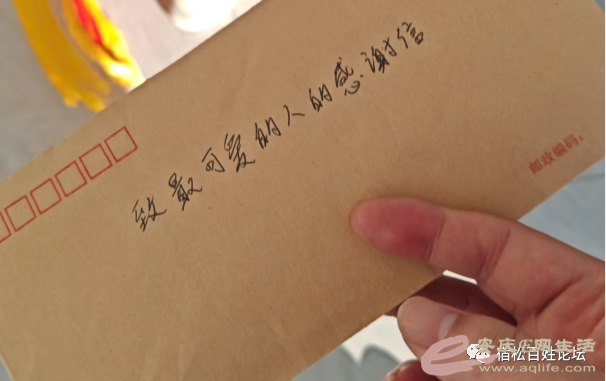 致最可爱的人的感谢信
邮政编码:
宿松百姓论坛
安庆E网生活
www.aqlife.com